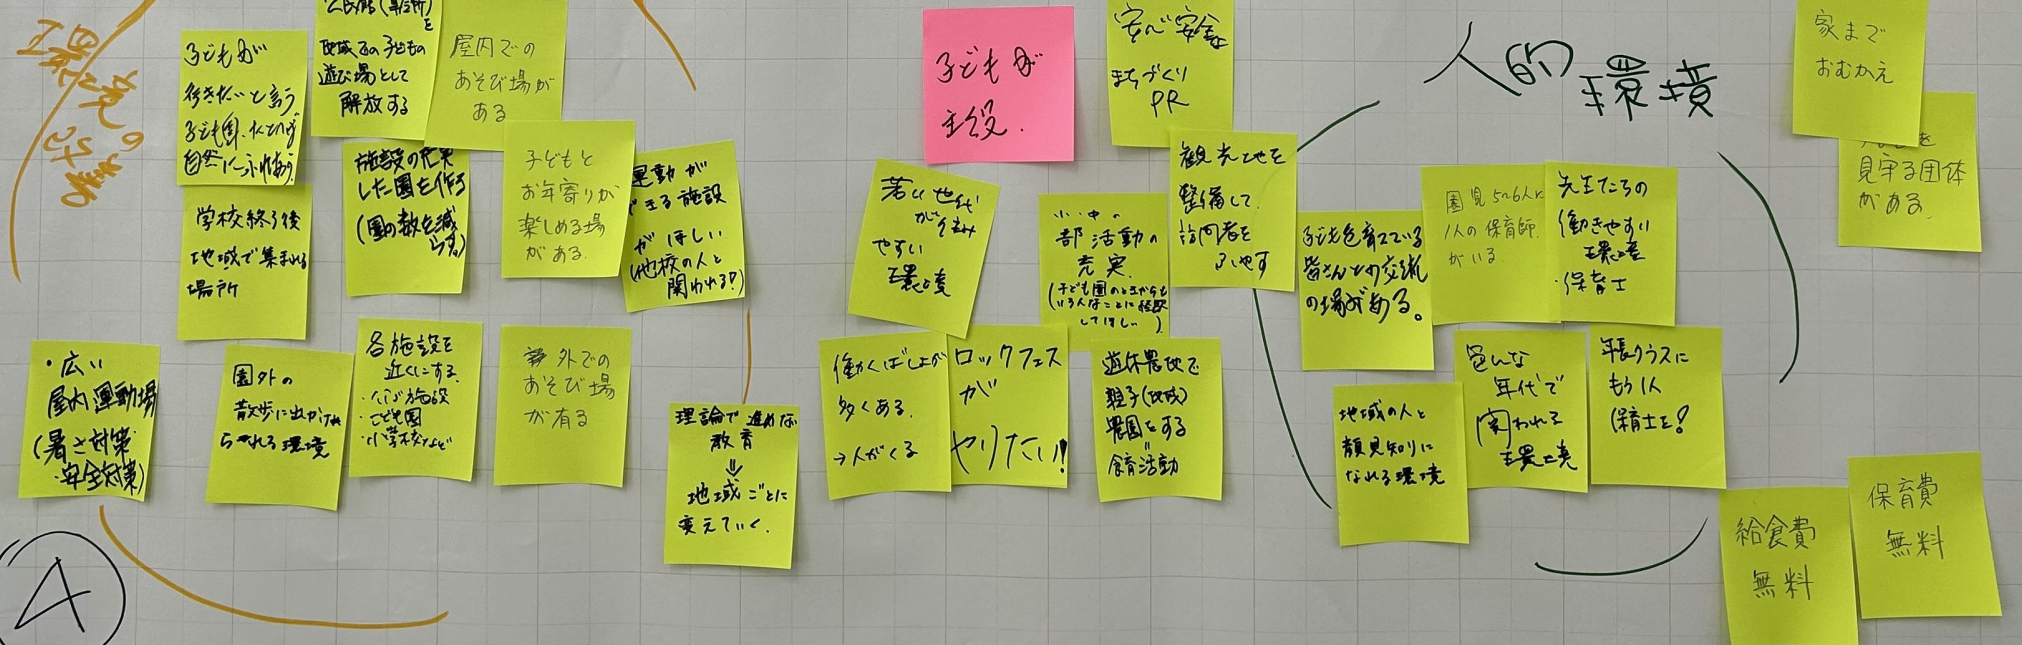 環境の改善
子どもが
行きたいと言う
子ども園、たとえば
自然にふれあう
公民館(集会所)を
地域での子どもの
遊び場として
解放する
屋内での
あそび場が
ある
学校終了後
地域で集まれる
場所
施設の充実
した園を作る
(園の数を減らす)
子どもと
お年寄りが
楽しめる場
がある
運動が
できる施設
がほしい
(他校の人と
関われる?)
・広い
屋内運動場
(暑さ対策
・安全対策)
園外の
散歩に出かけ
られる環境
各施設を
近くにする
・こども園
・小学校など
外での
あそび場
が有る
理論で進めない
教育
⇓
地域ごとに
変えていく。
4
子どもが
主役.
安心安全な
まちづくり
PR
若い世代
が住み
やすい
環境
小・中の
部活動の
充実
(子ども園のときからも
いろんなことに経験
してほしい)
観光地を
整備して、
訪問者を
ふやす
働くばしょが
多くある.
→人がくる
ロックフェス
が
やりたい!
遊休農地で
親子(地域)
農園をする
=
食育活動
人的環境
子どもを育てている
皆さんとの交流
の場がある。
園児5~6人に
1人の保育師.
がいる
先生たちの
働きやすい
環境
・保育士
地域の人と
顔見知りに
なれる環境
色んな
年代で
関われる
環境
年長クラスに
もう1人
保育士を!
家まで
おむかえ
見守る団体
がある.
給食費
無料
保育費
無料